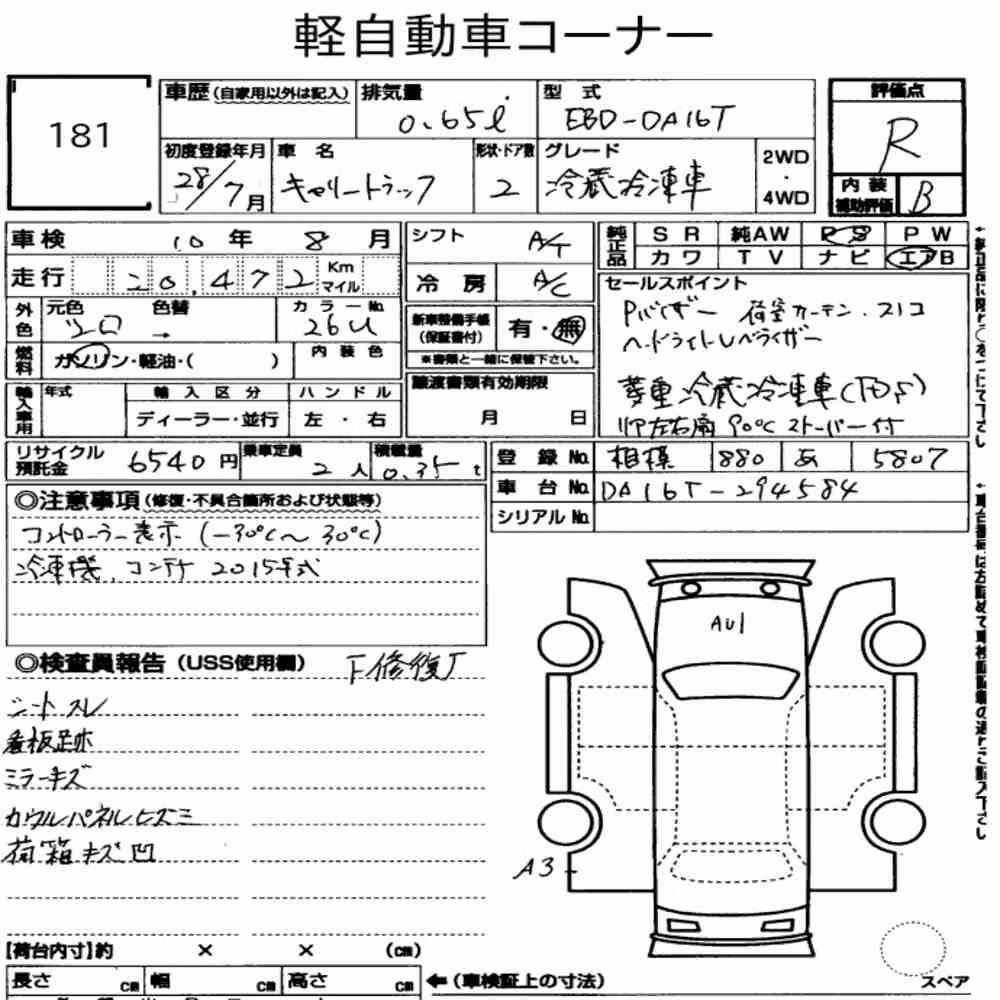 軽自動車コーナー
181
車歴 (自家用以外は記入) 排気量 型式 評価点
0.65ℓ EBD-DA16T R
初度登録年月 車名 形状・ドア数 グレード 2WD・4WD 内装補助評価
28/7月 キャリートラック 2 冷蔵冷凍車 B
車検 10年 8月 シフト A/T 純正品 SR 純AW PS PW
走行 20,472 Km マイル 冷房 A/C カワ TV ナビ エアB
外色 元色 色替 カラーNo.
シロ → 26U
新車整備手帳(保証書付) 有・無
※書類と一緒に保管下さい。
セールスポイント
Pバイザー 荷室カーテン.スノコ
ヘッドライトレベライザー
菱重冷蔵冷凍車(TDS)
左右扉 90℃ストーパー付
燃料 ガソリン・軽油・( ) 内装色
輸入車用 年式 輸入区分 ハンドル
ディーラー・並行 左・右
譲渡書類有効期限
月 日
リサイクル預託金 6540円 乗車定員 2人 積載量 0.35t
登録No. 相模 880 あ 5807
車台No. DA16T-294584
シリアルNo.
◎注意事項(修復・不具合箇所および状態等)
コントローラー表示 (-30℃~30℃)
冷凍機、コンテナ 2015年式
◎検査員報告(USS使用欄) 下修復歴
シートスレ
看板跡
ミラーキズ
カウルパネルヒズミ
荷箱キズ凹
AU1
A3
【荷台内寸】約 × × (cm)
長さ cm 幅 cm 高さ cm ←(車検証上の寸法)
スペア